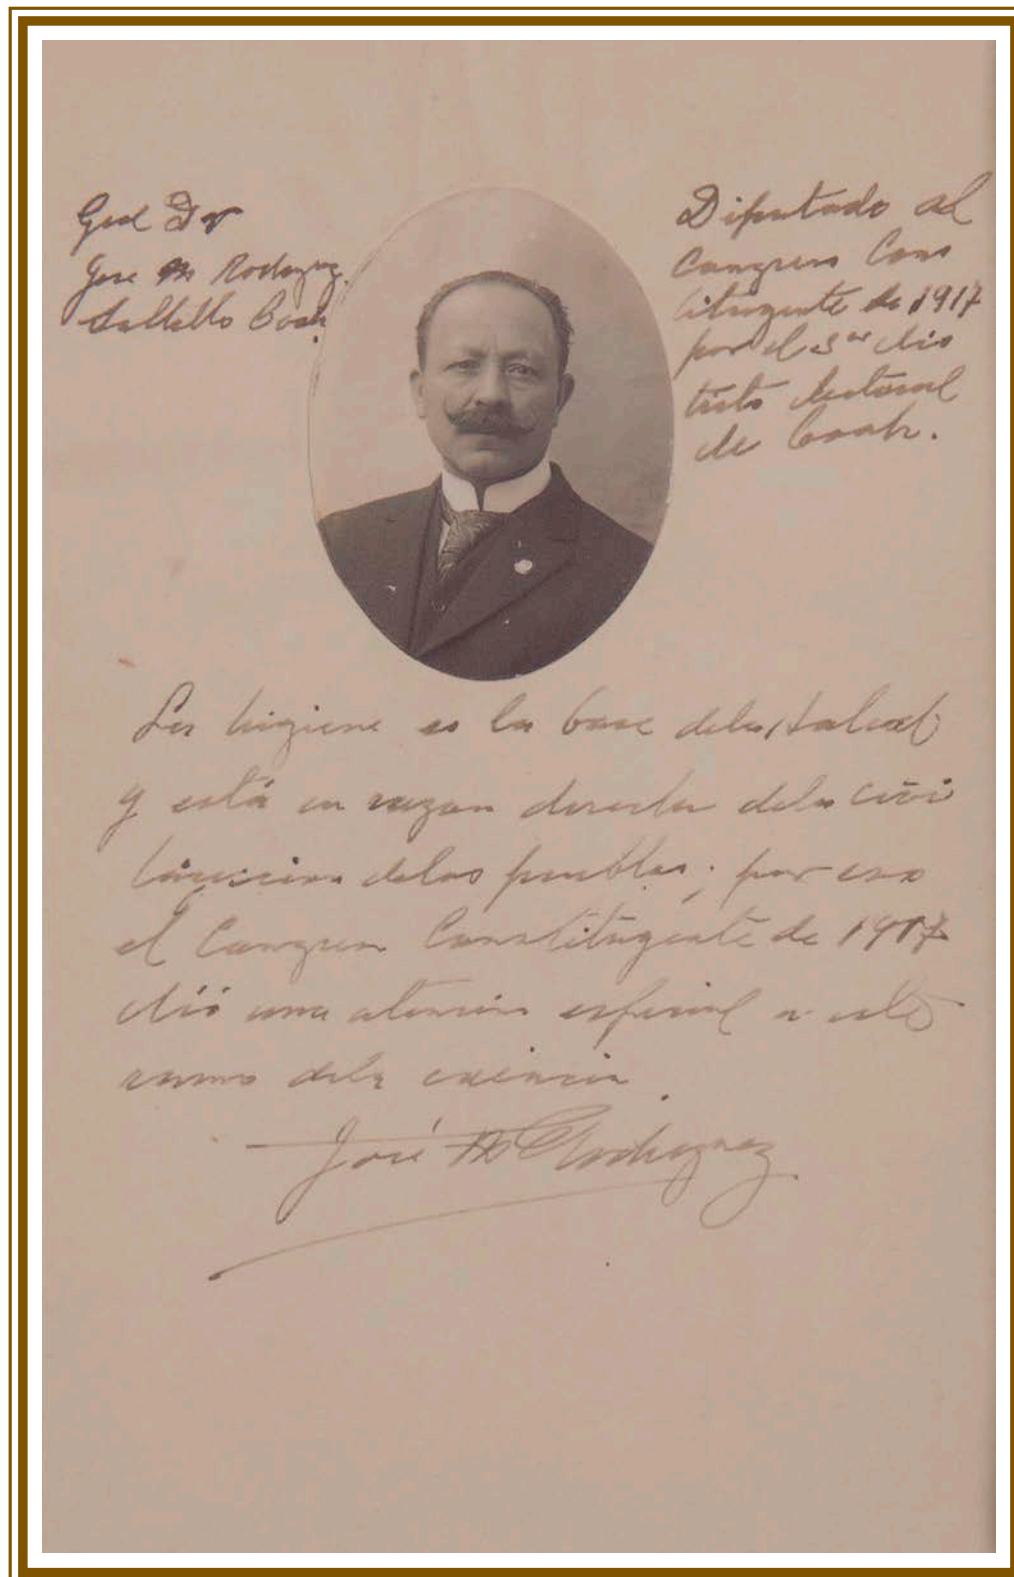 Gral Dr
Jose M Rodriguez
Saltillo Coah.
Diputado al
Congreso Cons
tituyente de 1917
por el 3er dis
trito electoral
de Coah.
La higiene es la base de la salud
y está en razon directa de la civi
lizacion de los pueblos; por eso
el Congreso Constituyente de 1917
dió una atencion especial a este
ramo de la ciencia.
José M Rodriguez